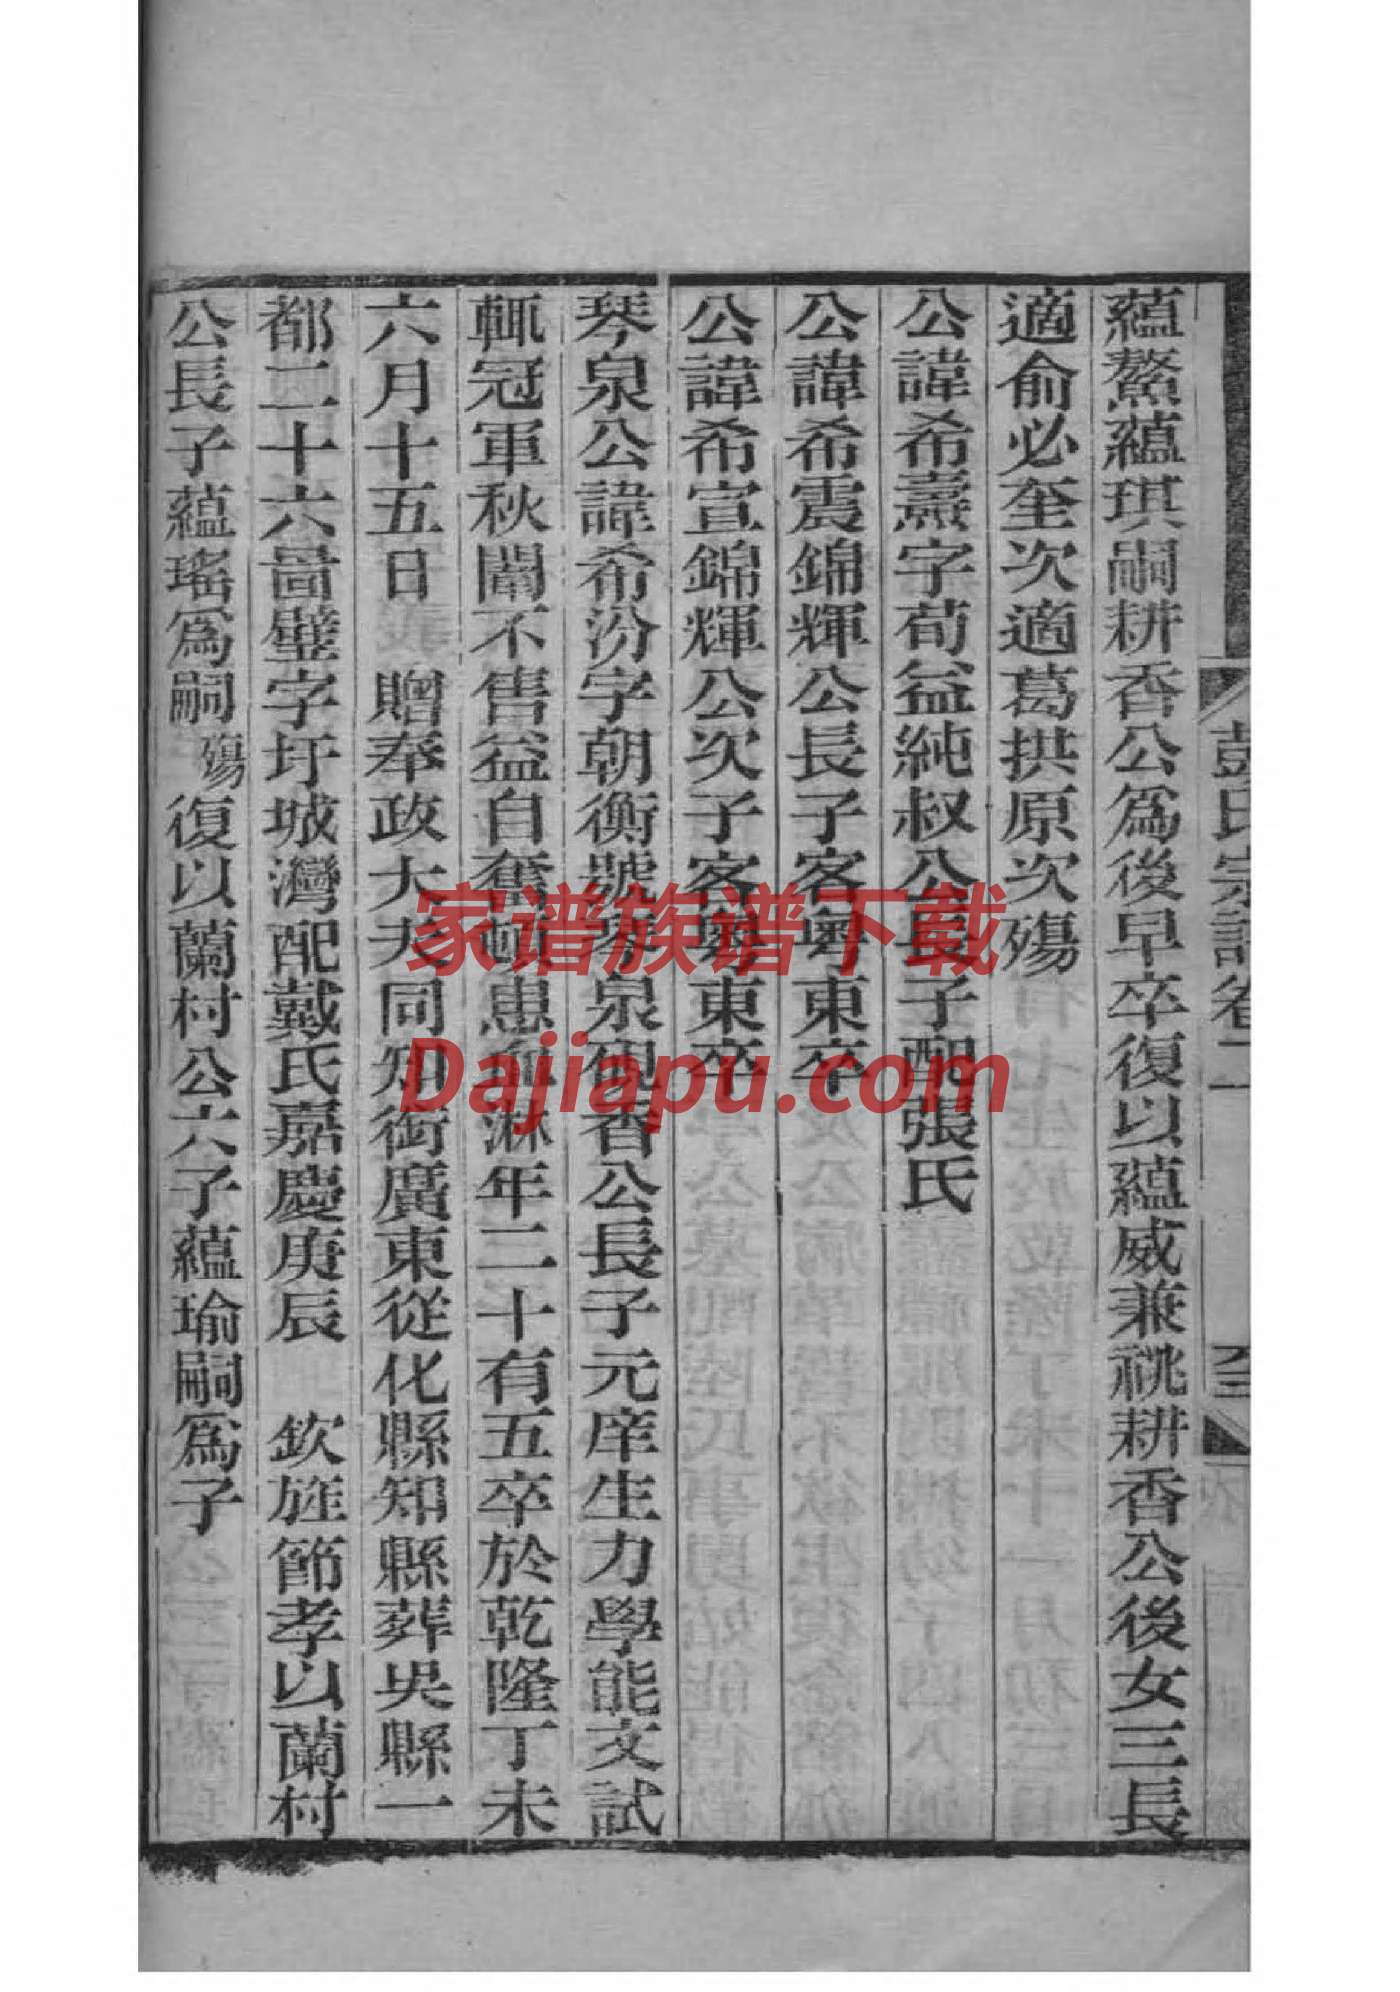 彭氏宗譜卷二
蘊鰲蘊琪嗣耕香公爲後早卒復以蘊威兼祧耕香公後女三長
適俞必奎次適葛拱原次殤
公諱希燾字荀益純叔公長子配張氏
公諱希震錦輝公長子客粤東卒
公諱希宣錦輝公次子客粤東卒
琴泉公諱希汾字朝衡號琴泉硯香公長子元庠生力學能文試
輒冠軍秋闈不售益自奮頓患血淋年二十有五卒於乾隆丁未
六月十五日 贈奉政大夫同知銜廣東從化縣知縣葬吳縣一
都二十六啚璧字圩坡灣配戴氏嘉慶庚辰 欽旌節孝以蘭村
公長子蘊瑤爲嗣殤復以蘭村公六子蘊瑜嗣爲子
家谱族谱下载
Dajiapu.com